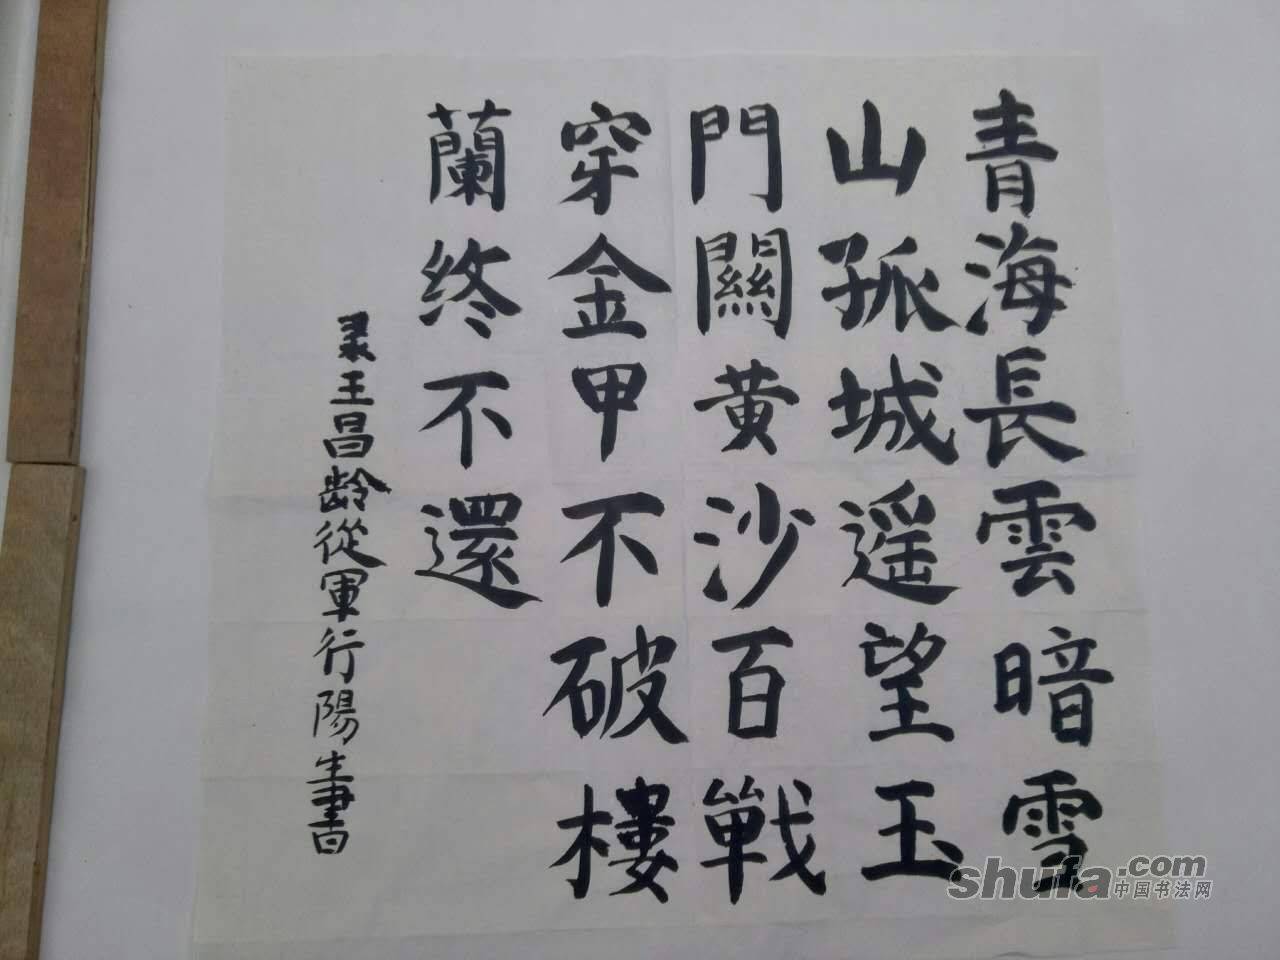 青海長雲暗雪
山孤城遥望玉
門關黄沙百戰
穿金甲不破樓
蘭終不還
王昌齡從軍行陽生書
shufa.com
中国书法网